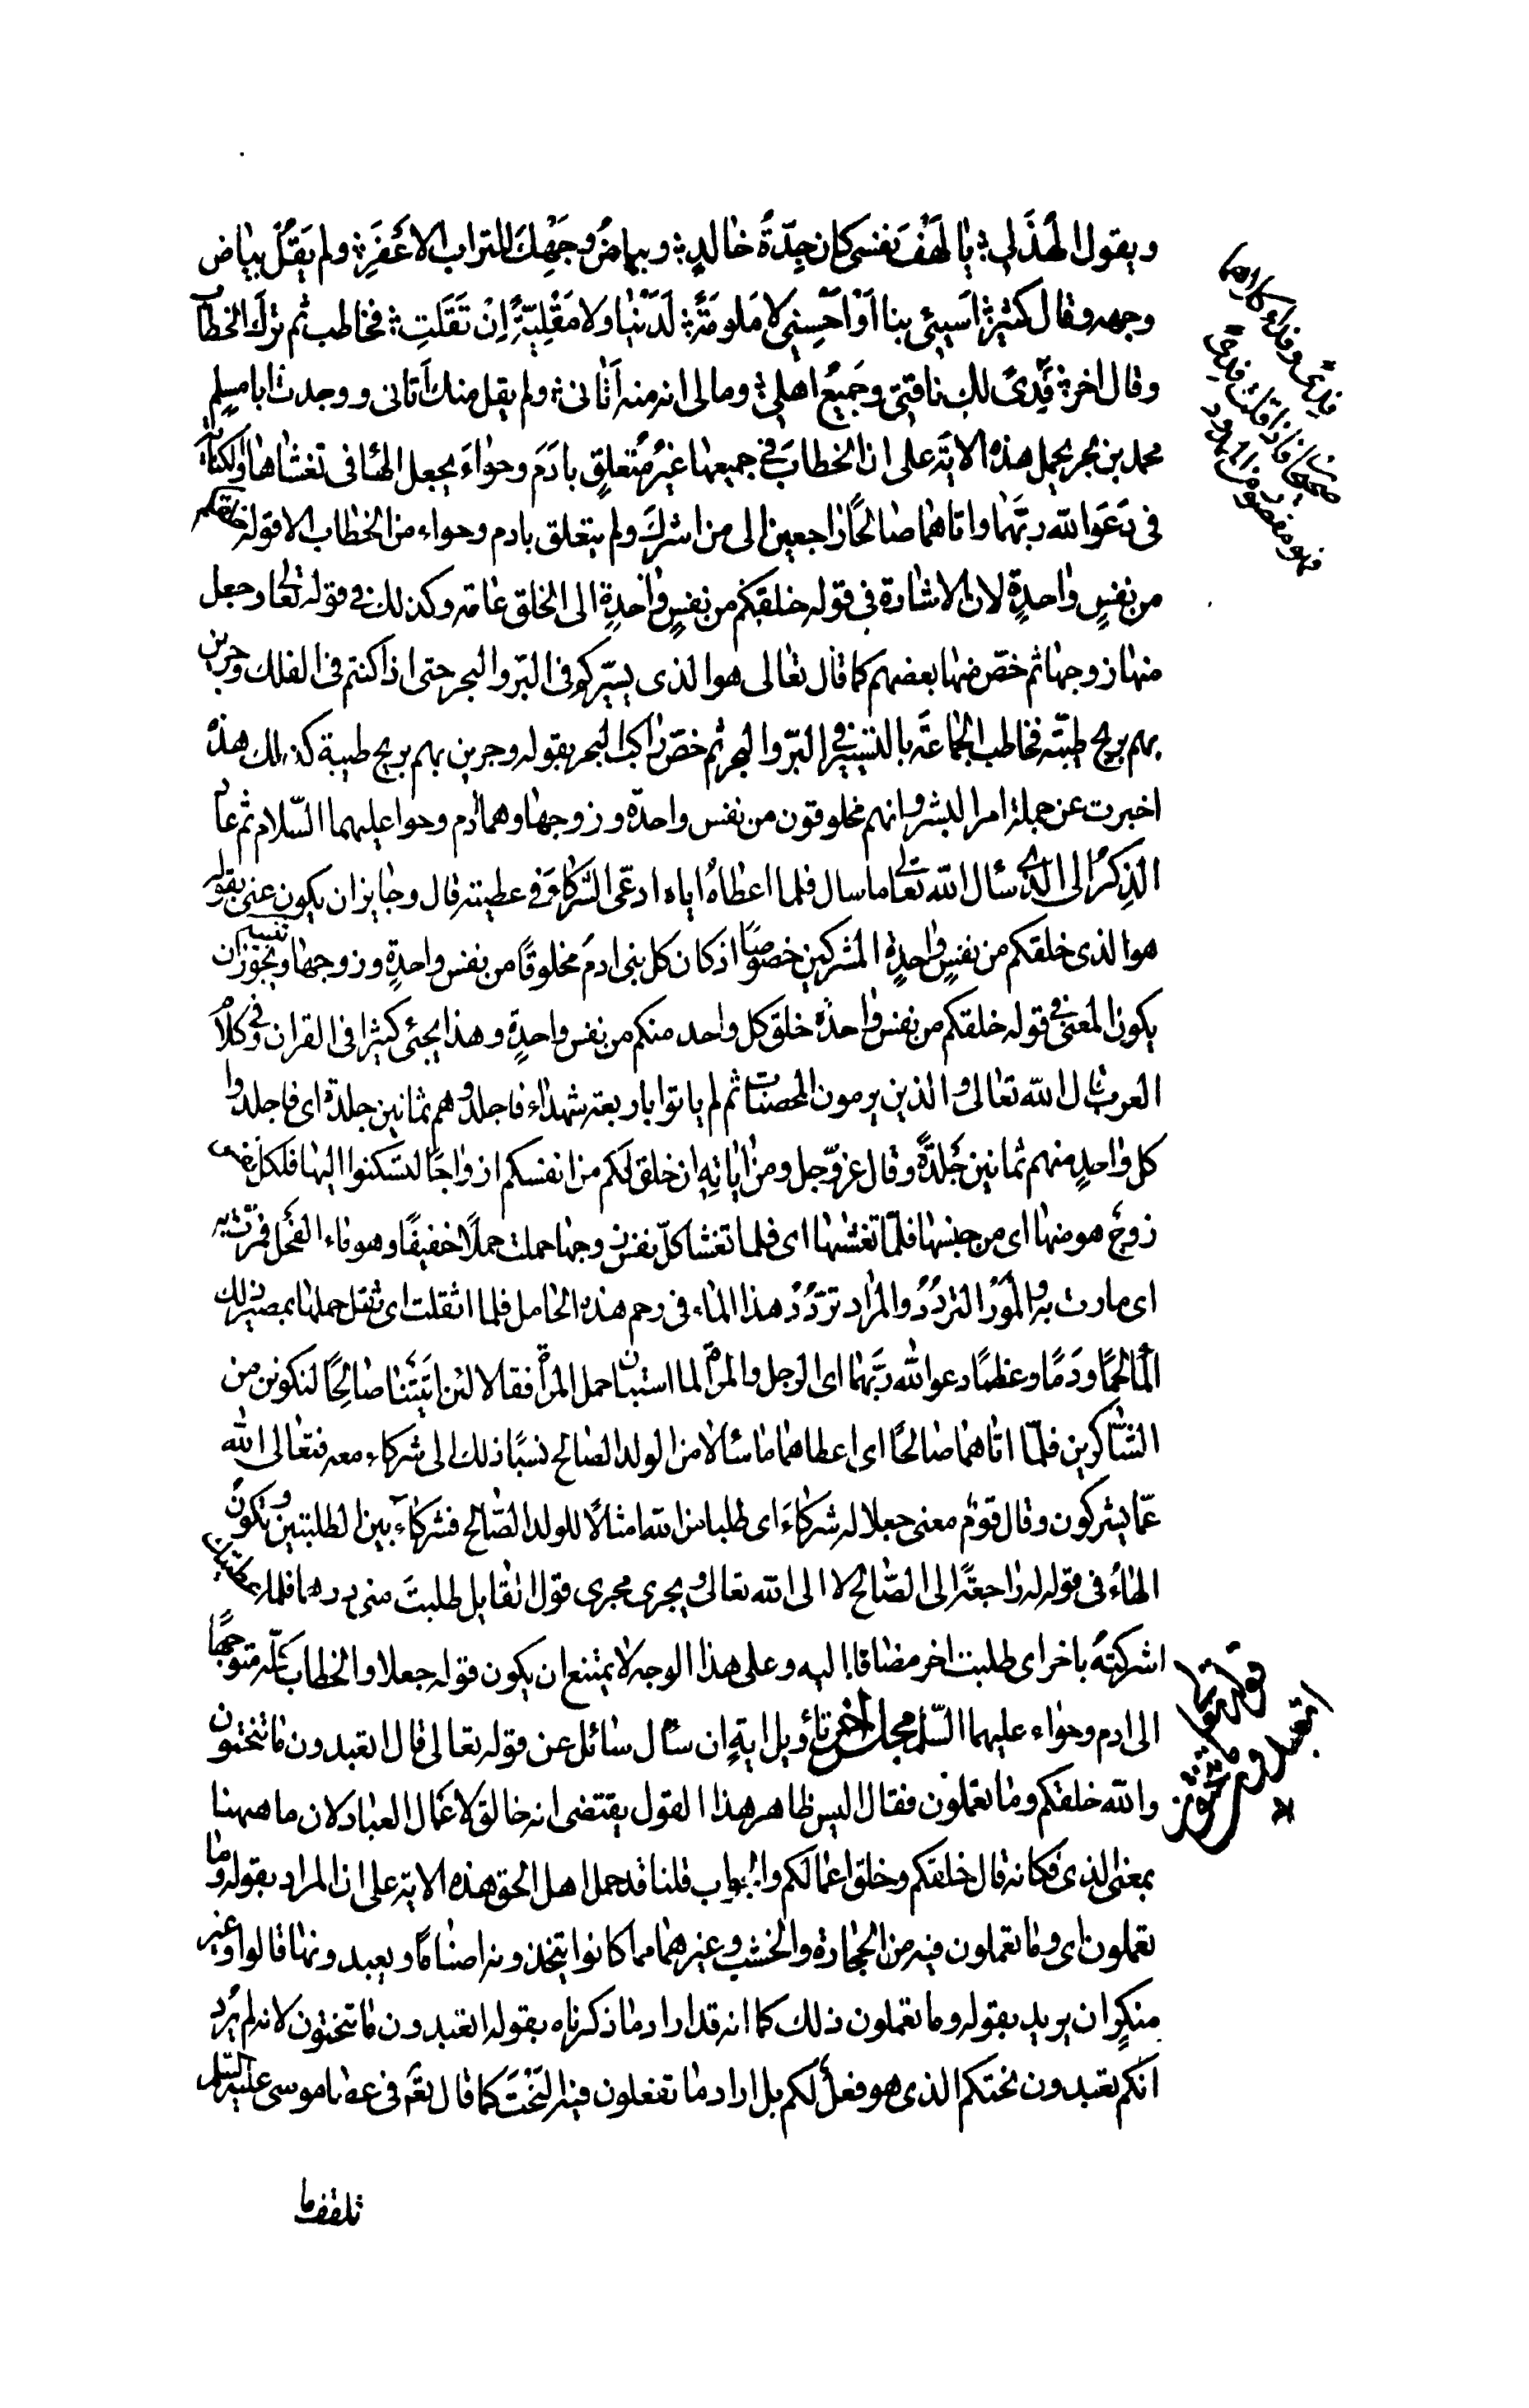 ويقول الهُذَلي يا لَهْفَ نفسى كان جِدّةُ خالدٍ وبياضُ وجهِكَ للتراب الاَعْفَرِ ولم يَقُلْ بياض
وجهه وقال كثير اَسيئى بنا اَوْ اَحْسِنى لا مَلومَةً لَدَيْنا ولا مَقْلِيّةً اِنْ تَقَلَّتِ فخاطب ثم ترك الخطاب
وقال اخر فِدًى لك ناقتى وجَميعُ اهلى ومالى انه منه اَتانى ولم يقل منك اَتانى ووجدت ابا مسلم
محمد بن بحر يحمل هذه الاية على ان الخطابَ فى جميعها غيرُ مُتعلقٍ بادَمَ وحواءَ يجعل الهاء فى تغشاها والكناية
فى دَعَوَا الله ربّهما واتاهما صالحًا راجعين الى من اشركَ ولم يتعلق بادم وحواء من الخطاب الا قوله خلقكم
من نفسٍ واحدةٍ لان الاشارة فى قوله خلقكم من نفسٍ واحدةٍ الى الخلق عامه وكذلك فى قوله تعا وجعل
منها زوجها ثم خصّ منها بعضهم كما قال تعالى هو الذى يسيّركم فى البرّ والبحر حتى اذا كنتم فى الفلك وجرين
بهم بريح طيّبة فخاطب الجماعَة بالتسيير فى البرّ والبحر ثم خصّ راكب البحر بقوله وجرين بهم بريح طيبة كذلك هذه
اخبرت عن جملة امر البشر وانهم مخلوقون من نفس واحدة وزوجها وهما ادم وحوا عليهما السّلام ثم عاد
الذِكرُ الى الذى سئال الله تعالى ما سال فلما اعطاهُ اياه ادعّى الشركاءَ فى عطيته قال وجايز ان يكون عنى بقوله
هو الذى خلقكم من نفسٍ واحدةٍ المشركين خصوصًا اذ كان كل بنى ادمَ مخلوقًا من نفس واحدةٍ وزوجها ويجوز ان
يكون المعنى فى قوله خلقكم من نفس واحدة خلق كل واحد منكم من نفس واحدةٍ وهذا يجئى كثيرا فى القران وفى كلام
العرب قال الله تعالى والذين يرمون المحصنات ثم لم ياتوا باربعة شهداء فاجلدوهم ثمانين جلدة اى فاجلدوا
كل واحدٍ منهم ثمانين جَلدةً وقال عزوّجل ومن اياتِهِ ان خلق لكم من انفسكم ازواجًا لتسكنوا اليها فلكل نفس
زوجٌ هو منها اى من جنسها فلمّا تغشّٰها اى فلما تغشا كلّ نفس زوجها حملت حملًا خفيفًا وهو ماء الفَحل فمرّت به
اى مارت به والمَوْرُ التردُدُ والمراد تردّدُ هذا الماء فى رحم هذه الحامل فلما اثقلت اى ثقل حملها بمصير ذلك
الماء لحمًا ودَمًا وعظمًا دعوا الله ربّهما اى الرجل والمراة لما استبان حمل المراة فقالا لئن اتيتَنا صالحًا لنكونن من
الشاكرين فلمّا اتاهما صالحًا اى اعطاهما ما سئالا من الولد الصالح نسبًا ذلك الى شركاء معه فتعالى الله
عمّا يشركون وقال قومٌ معنى جعلا له شركاءَ اى طلبا من الله امثالًا للولد الصّالح فشركاءَ بين الطلبتين وتكون
الهاءُ فى قوله له راجعةً الى الصّالح لا الى الله تعالى ويجرى مجرى قول القايل طلبتَ منى درهما فلما اعطيتك
اشركتهُ باخر اى طلبت اخر مضافا اليه وعلى هذا الوجه لا يمتنع ان يكون قوله جعلا والخطاب كلّه متوجهًا
الى ادم وحواء عليهما السّلم مجلس اخر تأويل ايةٍ ان سئال سائل عن قوله تعالى قال اتعبدون ما تنحتون
والله خلقكم وما تعملون فقال اليس ظاهر هذا القول يقتضى انه خالق لاعمال العباد لان ما ههنا
بمعنى الذى فكانه قال خلقكم وخلق اعمالكم والجواب قلنا قد حمل اهل الحق هذه الاية على ان المراد بقوله وما
تعملون اى وما تعملون فيه من الحجارة والخشب وغيرهما مما كانوا يتخذونه اصنامًا ويعبدونها قالوا وغير
منكرٍ ان يريد بقوله وما تعملون ذلك كما انه قد اراد ما ذكرناه بقوله اتعبدون ما تنحتون لانه لم يُرِد
انكم تعبدون نحتكم الذى هو فعلٌ لكم بل اراد ما تفعلون فيه النَحْتَ كما قال تعٰ فى عصا موسى عليه السّلم
تلقف ما
قوله تعا
اتعبدون ما تنحتون